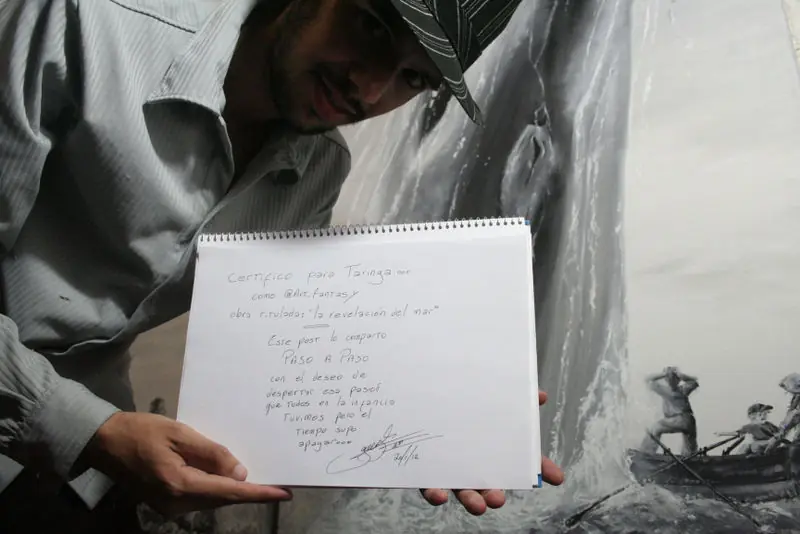 Certifico para Taringa...
como @Art.fantasy
obra titulada: "la revelación del mar"
Este post lo comparto
PASO A PASO
con el deseo de
despertar esa pasión
que todos en la infancia
tuvimos pero el
tiempo supo
apagar....
20/1/12